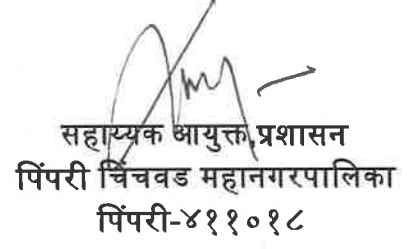 सहाय्यक आयुक्त,प्रशासन
पिंपरी चिंचवड महानगरपालिका
पिंपरी-४११०१८